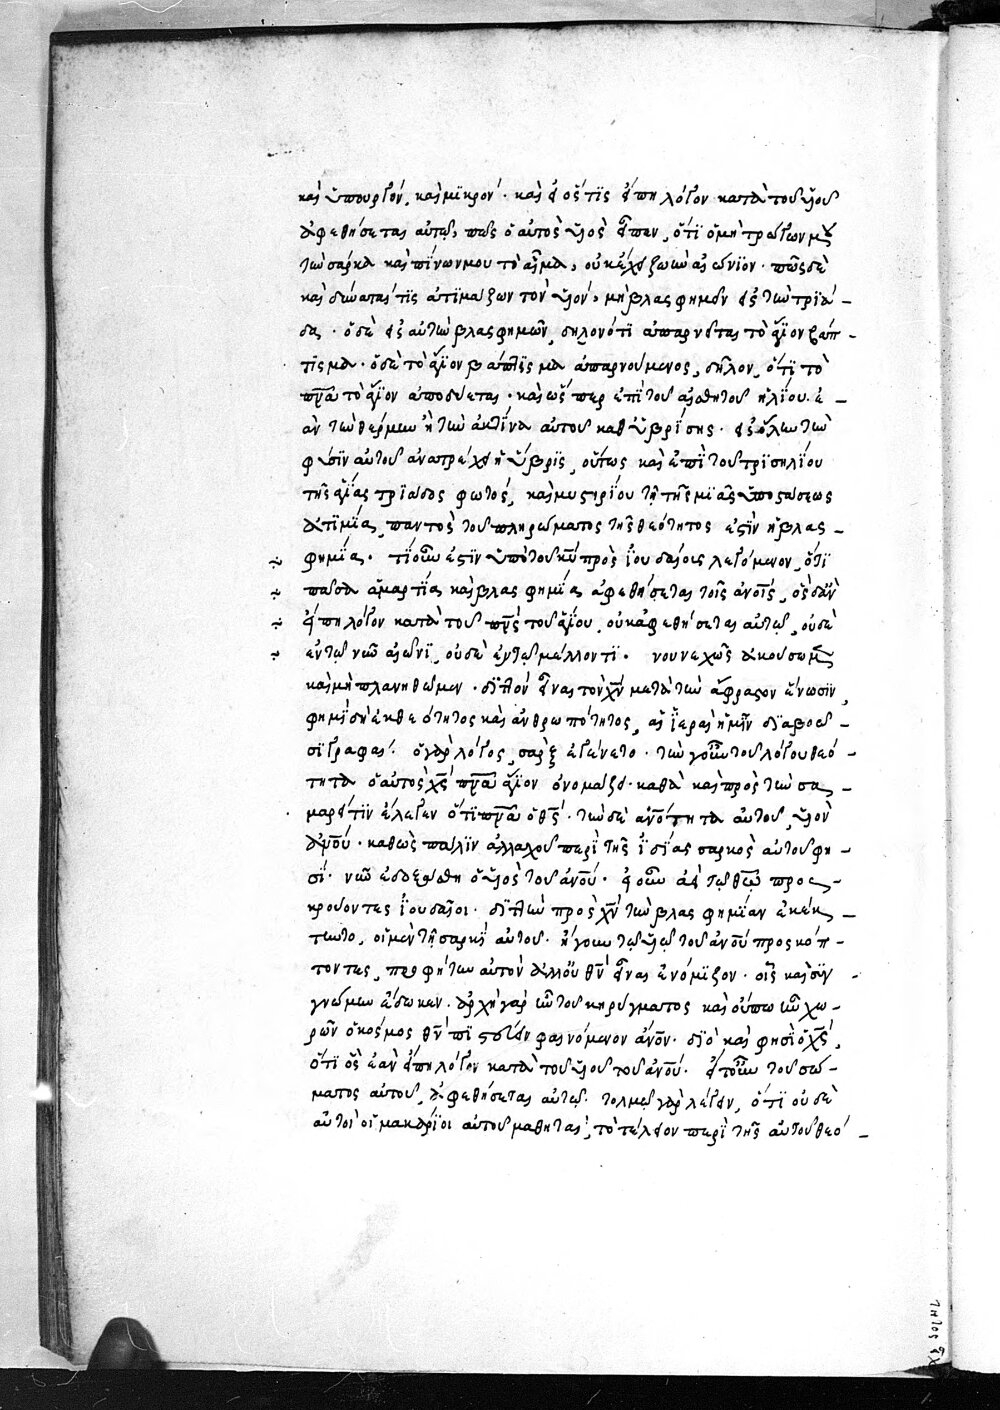 καὶ ὑπουργόν, καὶ μϊκρόν· καὶ εἰ ὅστϊς εἴπη λόγον κατὰ τοῦ υἱοῦ
ἀφεθήσεται αὐτῶ, πῶς ὁ αὐτὸς υἱὸς εἶπεν, ὅτϊ ὁ μὴ τρώγων μου
τὴν σάρκα καὶ πίνων μου τὸ αἷμα, οὐκ ἔχει ζωὴν αἰώνϊον· πῶς δὲ
καὶ δύναταί τϊς ἀτϊμάζων τὸν υἱόν, μὴ βλασφημεῖν εἰς τὴν τρϊά-
δα· ὁ δὲ εἰς αὐτὴν βλασφημῶν, δηλονότϊ ἀπαρνεῖται τὸ ἅγϊον βάπ-
τϊσμα· ὁ δὲ τὸ ἅγϊον βάπτϊσμα ἀπαρνούμενος, δῆλον, ὅτϊ τὸ
πνα τὸ ἅγϊον ἀποδύεται· καὶ ὥσπερ ἐπὶ τοῦ αἰσθητοῦ ἡλΐου· ἐ-
ὰν τὴν θέρμην ἢ τὴν ἀκτῖνα αὐτοῦ καθυβρΐσης· εἰς ὅλην τὴν
φύσϊν αὐτοῦ ἀνατρέχει ἡ ὕβρϊς, οὕτως καὶ ἐπὶ τοῦ τρϊσηλΐου
τῆς ἁγΐας τρϊάδος φωτός, καὶ μυστηρΐου τῆ τῆς μϊᾶς ὑποστάσεως
ἀτϊμΐα, παντὸς τοῦ πληρώματος τῆς θεότητος ἐστὶν ἡ βλασ-
φημΐα· τΐ οὖν ἐστὶν ὑπὸ τοῦ κυ πρὸς ἰουδαίοις λεγόμενον, ὅτϊ
πᾶσα ἁμαρτΐα καὶ βλασφημΐα ἀφεθήσεται τοῖς ἀνοις, ὃς δ' ἂν
εἴπη λόγον κατὰ τοῦ πνς τοῦ ἁγΐου, οὐκ ἀφεθήσεται αὐτῶ, οὐδὲ
ἐν τῶ νῦν αἰῶνϊ, οὐδὲ ἐν τῶ μέλλοντϊ· νουνεχῶς ἀκούσωμεν
καὶ μὴ πλανηθῶμεν· δϊπλὸν εἶναι τὸν χν μετὰ τὴν ἄφραστον ἕνωσϊν,
φημὶ δὴ ἐκ θεότητος καὶ ἀνθρωπότητος, αἱ ἱεραὶ ἡμῖν δϊαβοῶ-
σϊ γραφαί· ὁ γὰρ λόγος, σὰρξ ἐγένετο· τὴν γοῦν τοῦ λόγου θεό-
τητα ὁ αὐτὸς χς πνα ἅγϊον ὀνομάζει· καθὰ καὶ πρὸς τὴν σα-
μαρεῖτϊν ἔλεγεν ὅτϊ πνα ὁ θς· τὴν δὲ ἀνότητα αὐτοῦ, υἱὸν
ἀνου· καθὼς πάλϊν ἀλλαχοῦ περὶ τῆς ἰδΐας σαρκὸς αὐτοῦ φη-
σί· νῦν ἐδοξάσθη ὁ υἱὸς τοῦ ἀνου· εἰ οὖν ἀεὶ τῶ θω προσ-
κρούοντες ἰουδαῖοι· δϊπλὴν πρὸς χν τὴν βλασφημΐαν ἐκέκ-
τηντο, οἱ μὲν τῆ σαρκὶ αὐτοῦ· ἤγουν τῶ υἱῶ τοῦ ἀνου προσκόπ-
τοντες, προφήτην αὐτὸν ἀλλ' οὐ θν εἶναι ἐνόμϊζον· οἷς καὶ συγ
γνώμην ἔδωκεν· ἀρχὴ γὰρ ἦν τοῦ κηρύγματος καὶ οὔπω ἦν χω-
ρῶν ὁ κόσμος θν πϊστεύειν φαινόμενον ἀνον· δϊὸ καὶ φησὶν ὁ χς,
ὅτϊ ὃς ἐὰν εἴπη λόγον κατὰ τοῦ υἱοῦ τοῦ ἀνου· εἴτουν τοῦ σώ-
ματος αὐτοῦ, ἀφεθήσεται αὐτῶ· τολμῶ γὰρ λέγειν, ὅτϊ οὐδὲ
αὐτοὶ οἱ μακάρϊοι αὐτοῦ μαθηταί, τὸ τέλειον περὶ τῆς αὐτοῦ θεό-